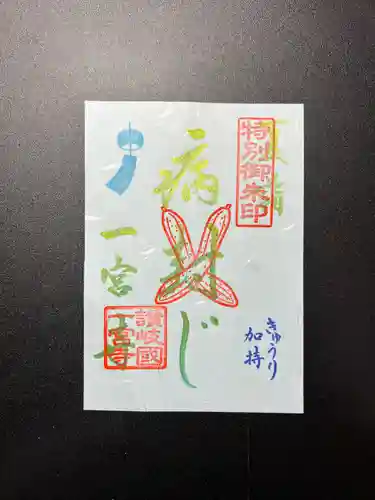 特別御朱印
病封じ
一宮寺
讃岐國
一宮寺
きゅうり
加持